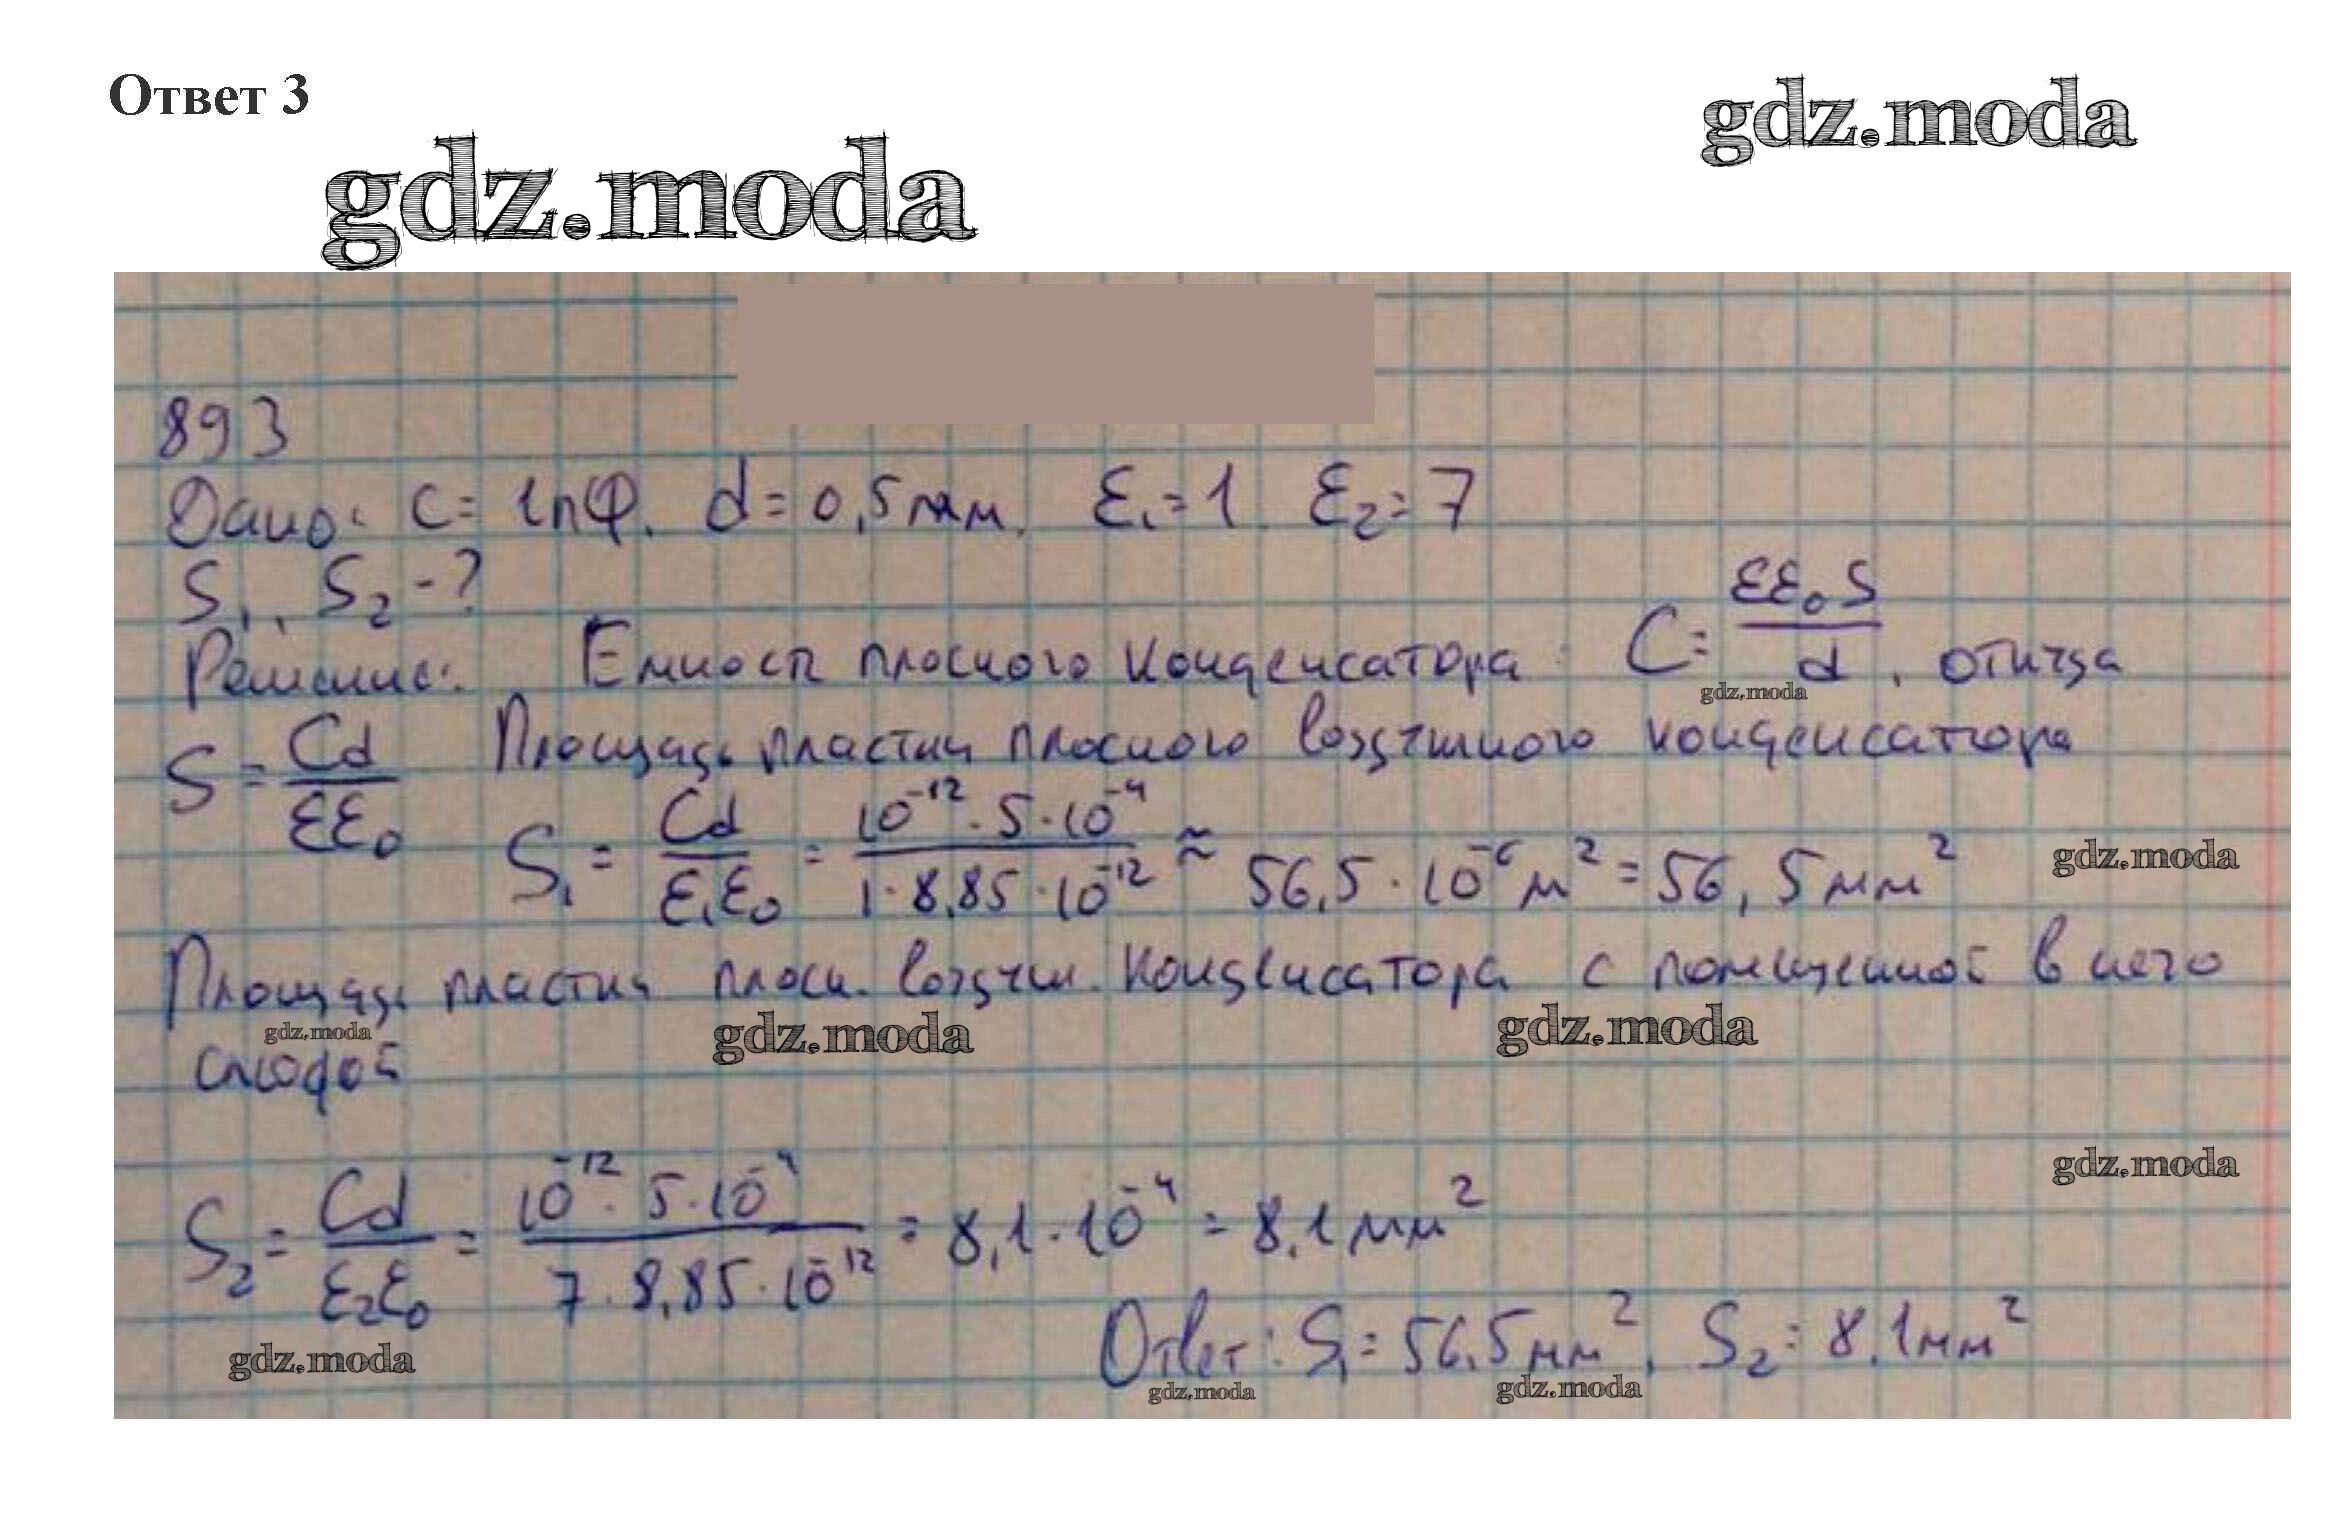 Ответ 3
gdz.moda
gdz.moda
893
Дано: C = 1пФ. d = 0,5мм. ε₁ = 1 ε₂ = 7
S₁, S₂ - ?
Решение: Емкость плоского конденсатора C = εε₀S / d, откуда
gdz.moda
S = Cd / εε₀ Площадь пластин плоского воздушного конденсатора
S₁ = Cd / ε₁ε₀ = 10⁻¹² · 5 · 10⁻⁴ / 1 · 8,85 · 10⁻¹² ≈ 56,5 · 10⁻⁶ м² = 56,5 мм²
gdz.moda
Площадь пластин плоск. воздушн. конденсатора с помещенной в него
gdz.moda gdz.moda gdz.moda
слюдой
gdz.moda
S₂ = Cd / ε₂ε₀ = 10⁻¹² · 5 · 10⁻⁴ / 7 · 8,85 · 10⁻¹² = 8,1 · 10⁻⁴ = 8,1 мм²
Ответ: S₁ = 56,5 мм², S₂ = 8,1 мм²
gdz.moda gdz.moda gdz.moda